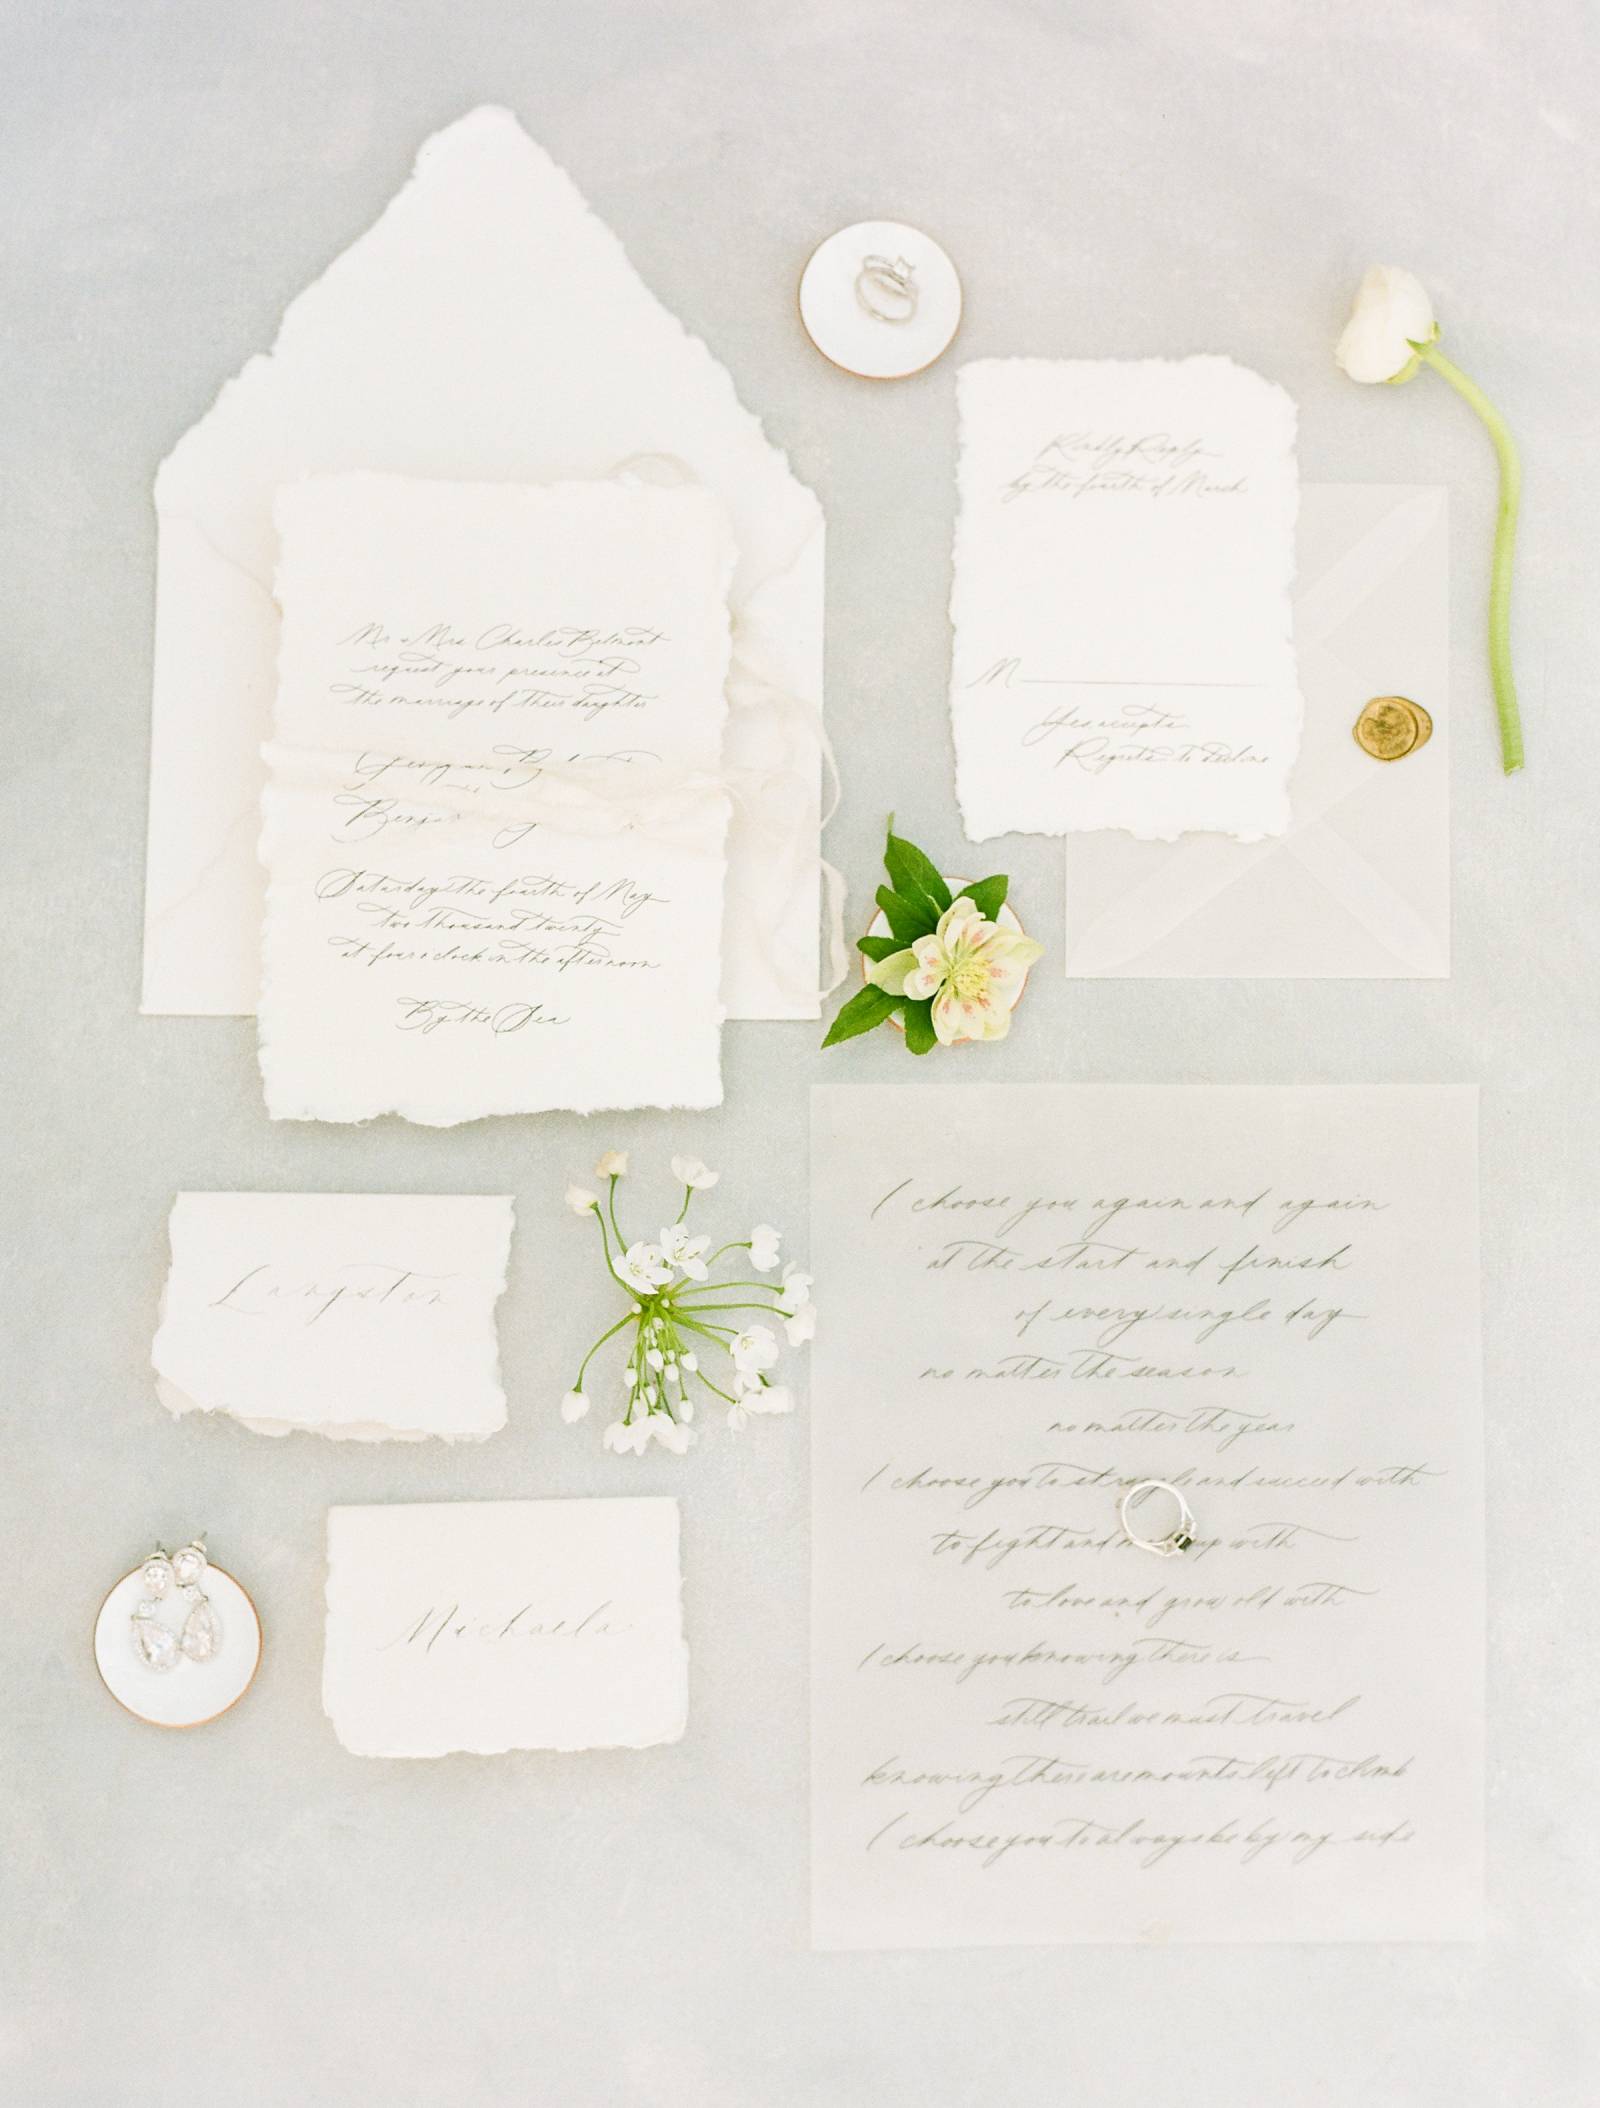 Mr & Mrs Charles Belmont
request your presence at
the marriage of their daughter
Saturday the fourth of May
two thousand twenty
at four o'clock in the afternoon
By the Sea
Kindly Reply
by the fourth of March
M
Yes accepts
Regrets to decline
Langston
Michaela
I choose you again and again
at the start and finish
of every single day
no matter the season
no matter the year
I choose you to struggle and succeed with
to fight and up with
to love and grow old with
I choose you knowing there is
still trail we must travel
knowing there are mounts left to climb
I choose you to always be by my side